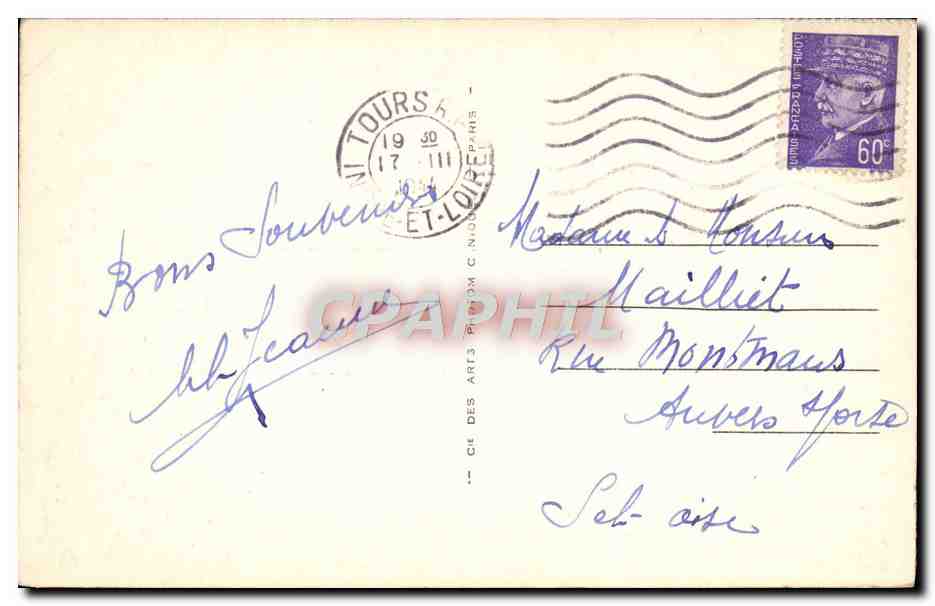 Bons Souvenirs
Jeanne
NI TOURS
19 30
17 III
ET-LOIRE
CIE DES ARTS PHOTOMÉCANIQUES PARIS
POSTES FRANÇAISES
60c
Madame & Monsieur
Mailliet
Rue Montmaus
Auvers s/ Orse
Set-oise
CPAPHIL